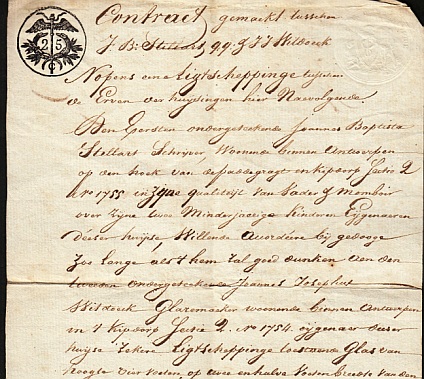 25
C
Contract gemaekt tusschen
J. B. Stellart, & J J Witdoeck
Nopens eene Ligtscheppinge tusschen
de Erven der huijsingen hier Naervolgende.
Den Eersten ondergeteekende Joannes Baptista
Stellart Schrijver, Woonende binnen Antwerpen
op den hoek van de Kipdorp Sectie 2
Nro 1755 in Zijne qualiteijt van Vader & Momboir
over Zijne twee Minderjaerige Kinderen Eijgenaeren
deeser huijse, Willende accordeere bij gedooge
Zoo lange als 't hem Zal goed dunken aen den
tweeden ondergeteekende Joannes Josephus
Witdoeck Glazemaeker woonende binnen antwerpen
in 't Kipdorp Sectie 2. Nro 1754. eijgenaer deser
huijse Zekere Ligtscheppinge Glas van
hoogte vier voeten op twee en halve voeten breede van den